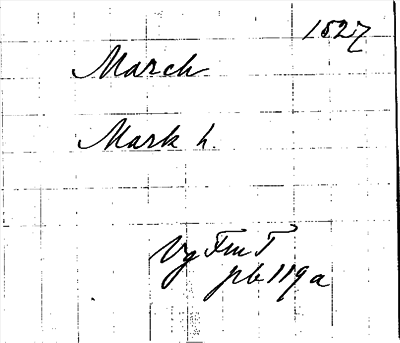 1527
March
Mark h.
Vg FmT
pb 119a